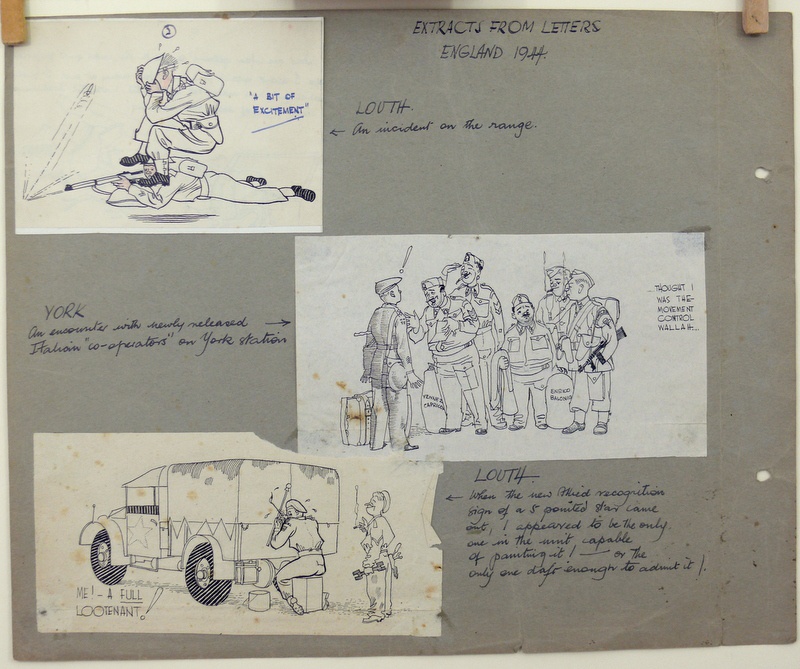 EXTRACTS FROM LETTERS
ENGLAND 1944.
2
"A BIT OF
EXCITEMENT"
LOUTH.
← An incident on the range.
...THOUGHT I
WAS THE
MOVEMENT
CONTROL
WALLAH...
YORK
An encounter with newly released →
Italian "co-operators" on York station
ENRICO
BALONIO
LOUTH.
← When the new Allied recognition
sign of a 5 pointed star came
out, I appeared to be the only
one in the unit capable
of painting it! — or the
only one daft enough to admit it!.
ME! - A FULL
LOOTENANT!